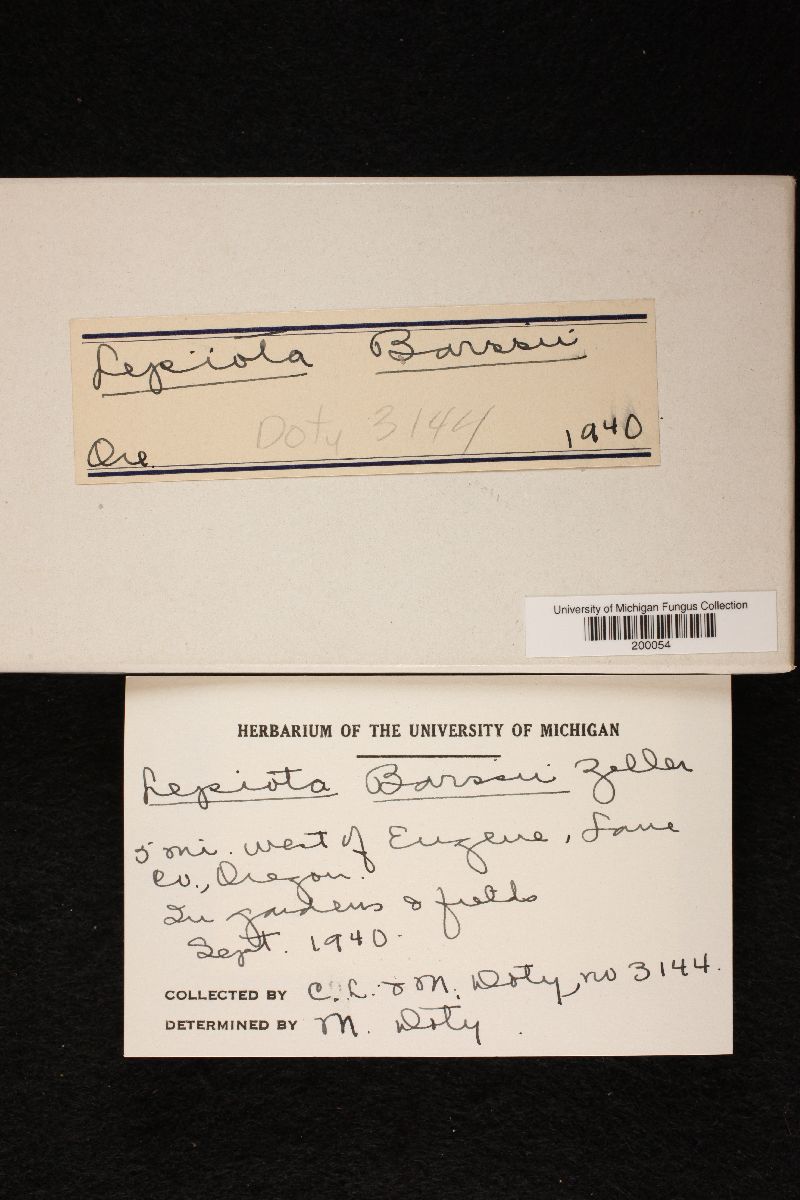 Lepiota Barssii
Doty 3144
Ore. 1940
University of Michigan Fungus Collection
200054
HERBARIUM OF THE UNIVERSITY OF MICHIGAN
Lepiota Barssii Zeller
5 mi. west of Eugene, Lane
Co., Oregon.
In gardens & fields
Sept. 1940.
COLLECTED BY C. L. & M. Doty, no 3144.
DETERMINED BY M. Doty.